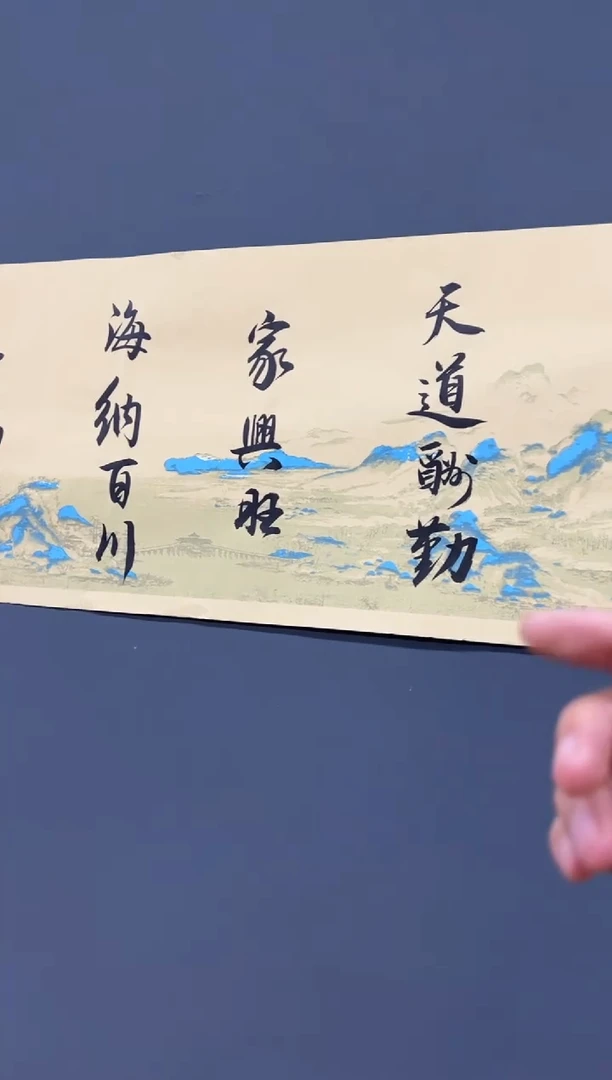 天道酬勤
家興旺
海納百川